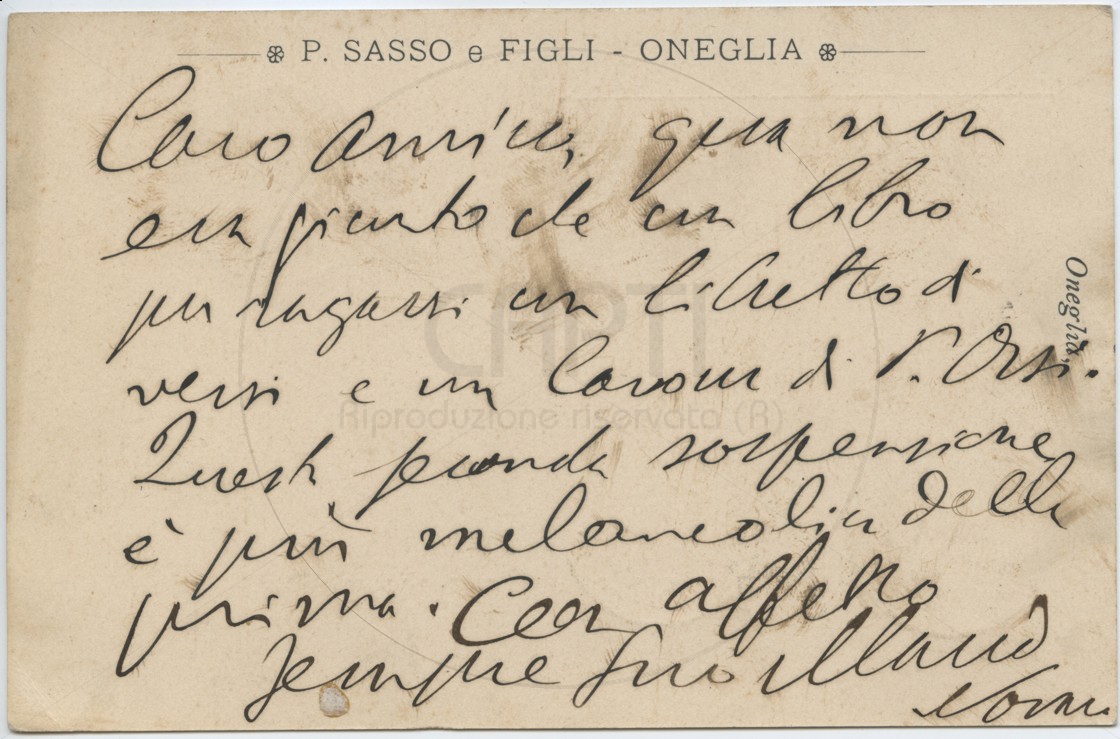 P. SASSO e FIGLI - ONEGLIA
Oneglia,
Caro amico, qua non
era giunto che un libro
per ragazzi un libretto di
versi e un Cavour di P. Orsi.
Questa seconda sospensione
è più melancolica della
prima. Con affetto
sempre suo Mario
Novaro
CARTI
Riproduzione riservata (R)